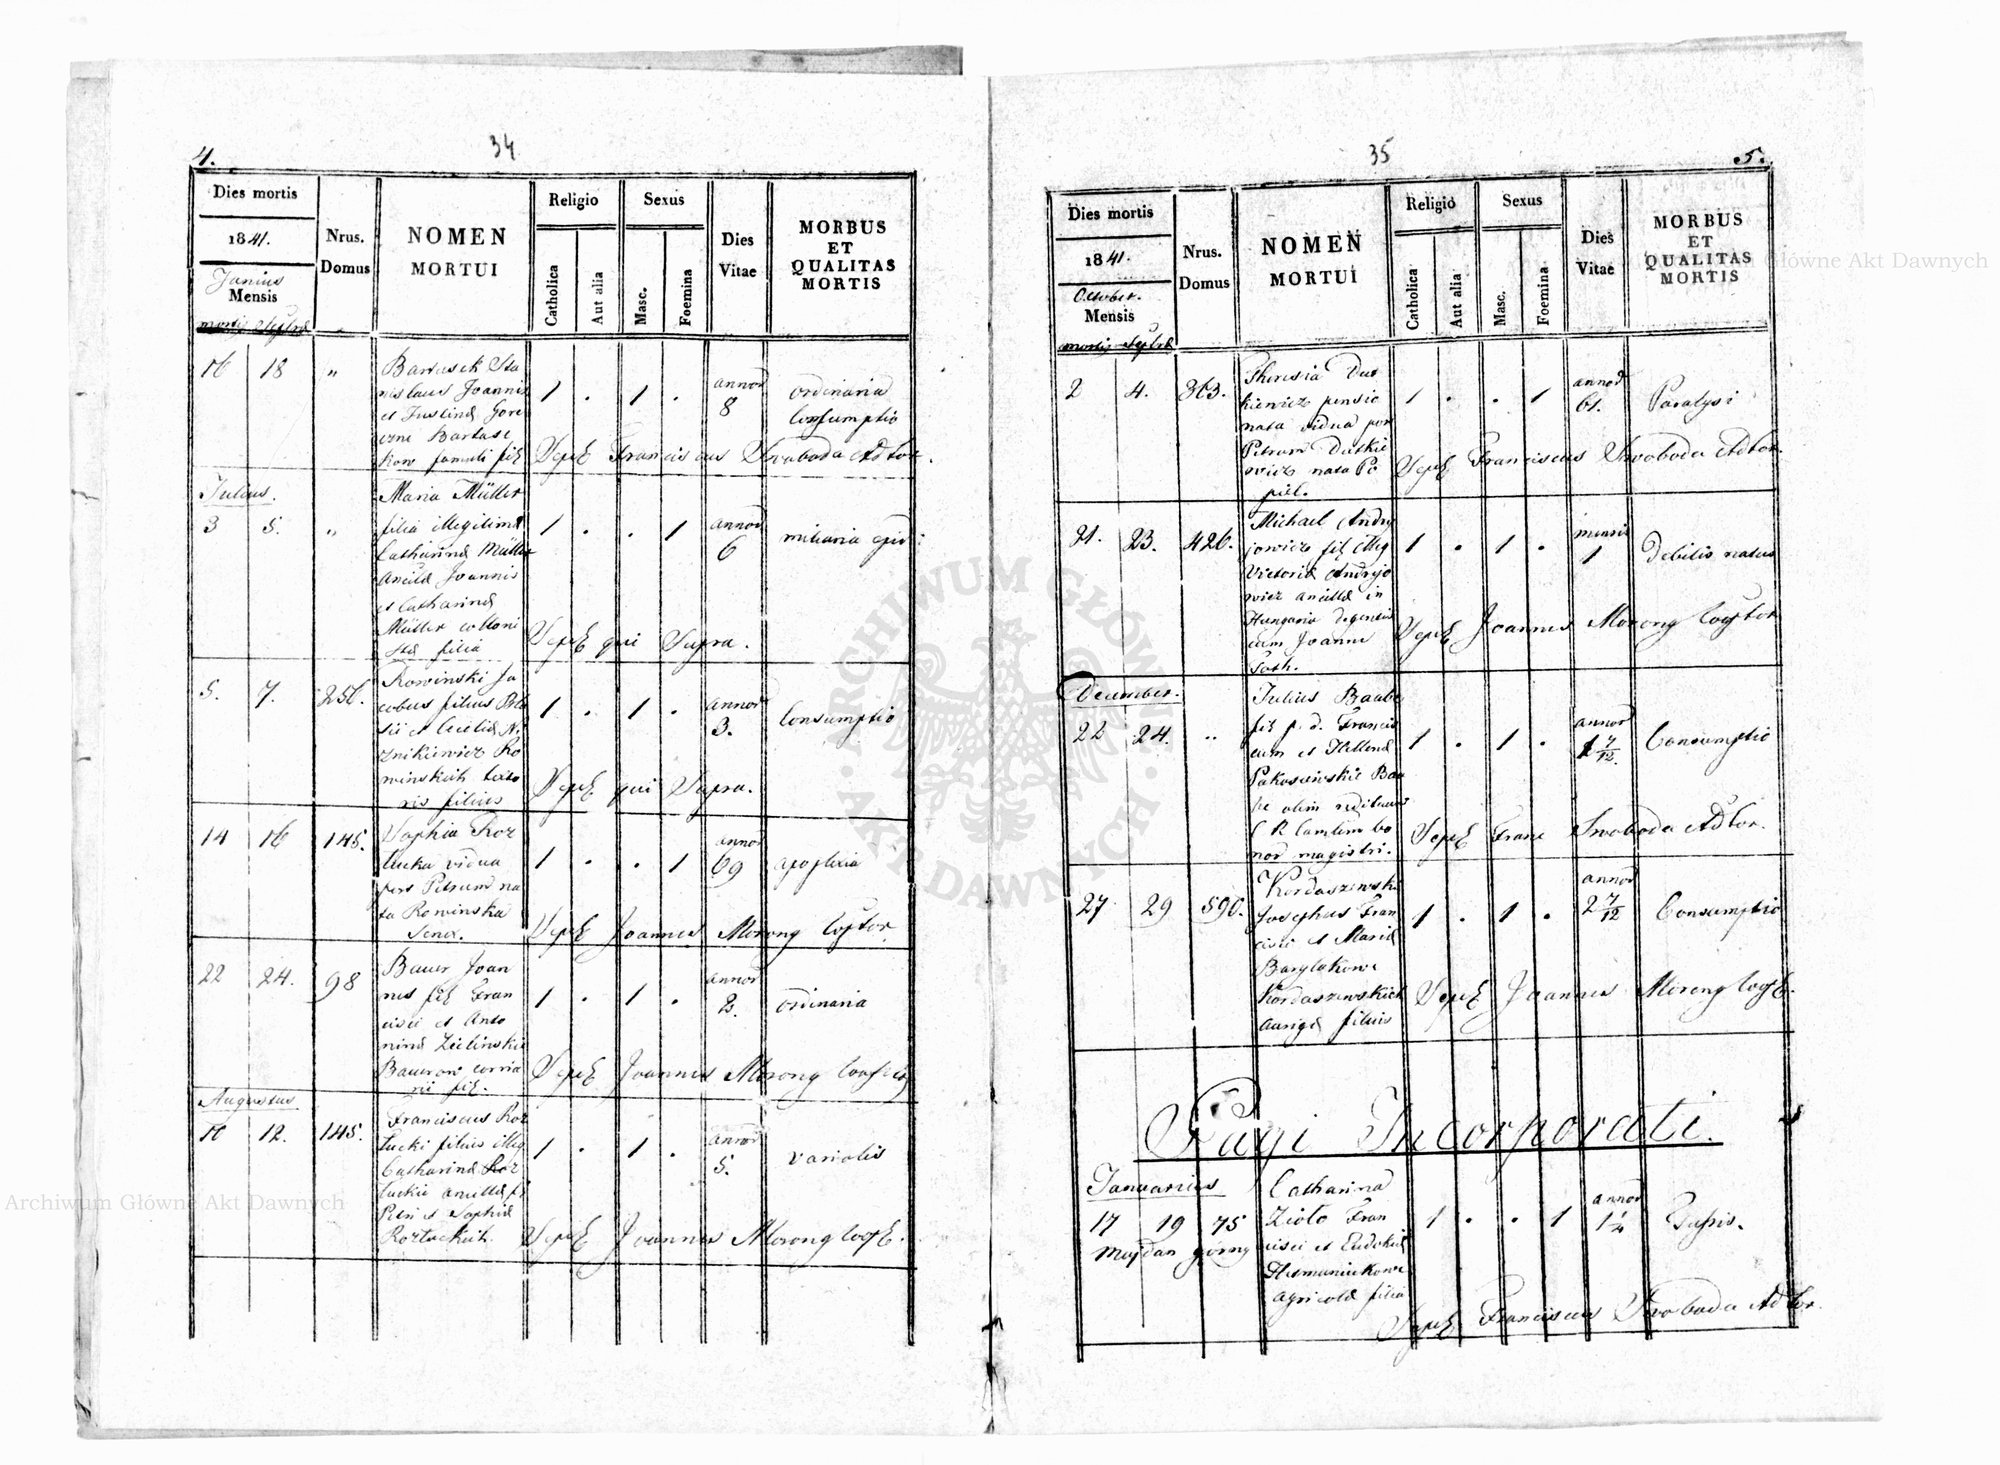 4.
34
Dies mortis
1841.
Junius
Mensis
mortis Septra
Nrus.
Domus
NOMEN
MORTUI
Religio
Catholica
Aut alia
Sexus
Masc.
Foemina
Dies
Vitae
MORBUS
ET
QUALITAS
MORTIS
16 18 " Bartasek Sta
nislaus Joannis
et Justinae
Bartase
kow famuli fil
1 . 1 . annor 8
ordinaria
Consumptio
Sepel Franciscus Swoboda Adtor.
Julius.
3 5. " Maria Müller
filia illegitima
Catharinae Müller
Ancillae Joannis
et Catharinae
Müller colloni
stae filia
1 . . 1 annor 6
miliaria epid:
Sepel qui Supra.
5. 7. 256. Rowinski Ja
cobus filius Bla
sii et Ceciliae
Ro
winskich texto
ris filius
1 . 1 . annor 3.
Consumptio
Sepel qui Supra.
14 16 145. Sophia Roz
lucka vidua
post Petrum na
ta Rowinska
Senex.
1 . . 1 annor 69
apoplexia
Sepel Joannes Morong Coptor
22 24. 98 Bauer Joan
nes fil Fran
cisci et Anto
ninae Zielinskie
Bauerow corria
rii fil.
1 . 1 . annor 2.
ordinaria
Sepel Joannes Morong
Augustus
10 12. 145. Franciscus Roz
lucki filius illeg
Catharinae Roz
luckie ancillae fi
Petri et Sophiae
Rozluckich.
1 . 1 . annor 5.
variolis
Sepel Joannes Morong
35
5.
Dies mortis
1841.
October.
Mensis
mortis Septra
Nrus.
Domus
NOMEN
MORTUI
Religio
Catholica
Aut alia
Sexus
Masc.
Foemina
Dies
Vitae
MORBUS
ET
QUALITAS
MORTIS
2 4. 363. Theresia Dut
kiewicz pensio
nata vidua post
Petrum Dutkie
wicz nata Po
piel.
1 . . 1 annor 61.
Paralysi
Sepel Franciscus Swoboda Adtor.
21. 23. 426. Michael Andry
jowicz fil illeg
Victoriae Andryjo
wicz ancillae in
Hungaria degentis
cum Joanne
1 . 1 . mensis 1
Debilis natus
Sepel Joannes Morong Coptor
December.
22 24. " Julius Baabe
fil p. d. Francis
cum et Hellenae
Pakoszewskie Baa
be olim
C R Camlim bo
nor magistri.
1 . 1 . annor 1 7/12.
Consumptio
Sepel Franc Swoboda Adtor.
27 29 590. Kordaszewski
Josephus Fran
cisci et Mariae
Barylakowe
Kordaszewskich
Aurigae filius
1 . 1 . annor 2 7/12
Consumptio
Sepel Joannes Morong
Pagi Incorporati.
Januarius
17 19 75
Majdan górny
Catharina
Zioto Fran
cisci et Eudokiae
Hermaniukowe
Agricolae filia
1 . . 1 annor 1 1/4
Tussis.
Sepel Franciscus Swoboda Adtor.
ARCHIWUM GŁÓWNE AKT DAWNYCH
Archiwum Główne Akt Dawnych
Archiwum Główne Akt Dawnych